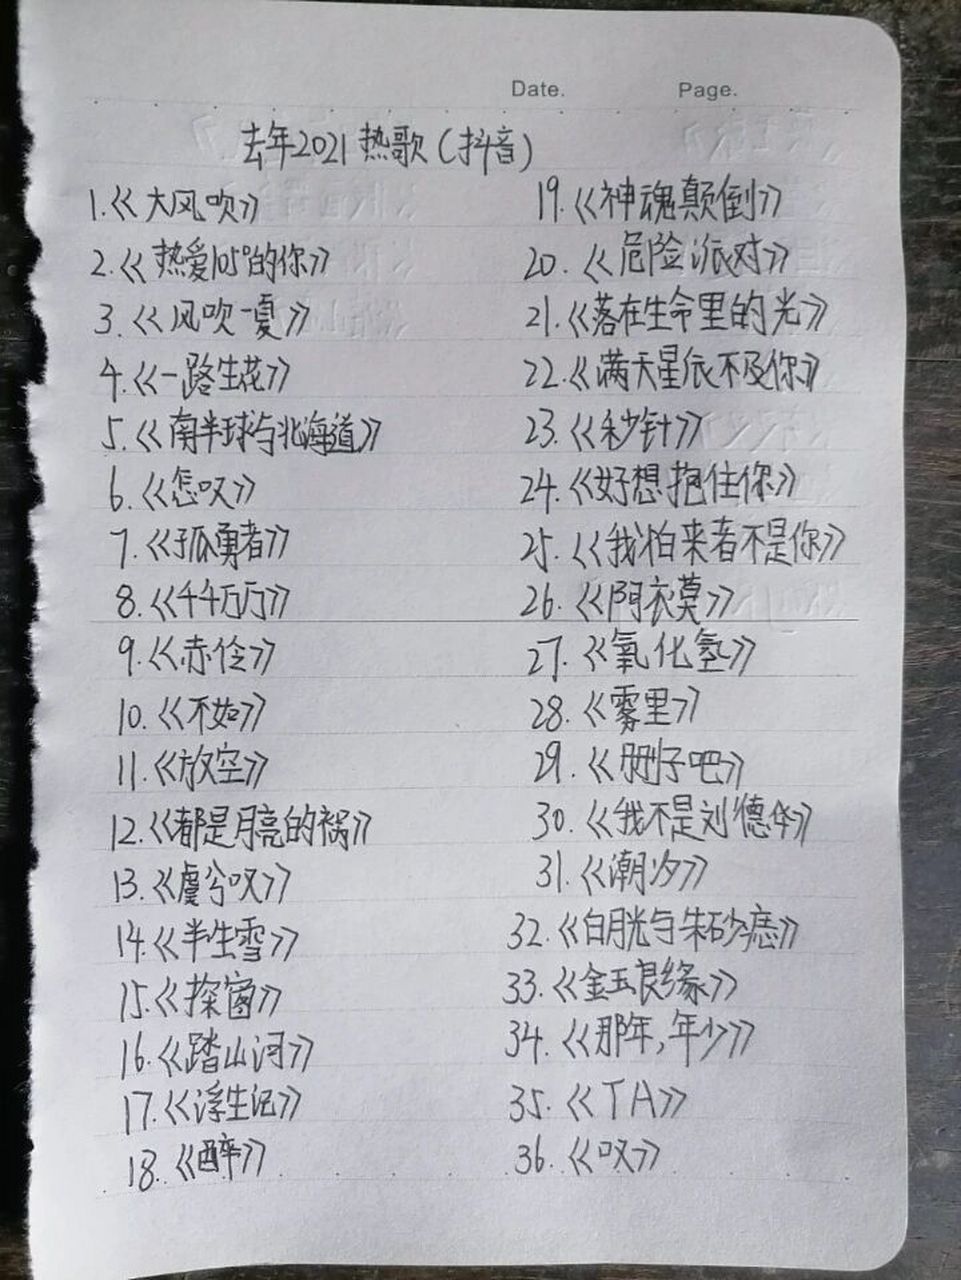 Date.
Page.
去年2021热歌(抖音)
1.《大风吹》
2.《热爱105°的你》
3.《风吹一夏》
4.《一路生花》
5.《南半球与北海道》
6.《怎叹》
7.《孤勇者》
8.《千千万万》
9.《赤伶》
10.《不如》
11.《放空》
12.《都是月亮的祸》
13.《虞兮叹》
14.《半生雪》
15.《探窗》
16.《踏山河》
17.《浮生记》
18.《醉》
19.《神魂颠倒》
20.《危险派对》
21.《落在生命里的光》
22.《满天星辰不及你》
23.《秒针》
24.《好想抱住你》
25.《我怕来者不是你》
26.《阿衣莫》
27.《氧化氢》
28.《雾里》
29.《删了吧》
30.《我不是刘德华》
31.《潮汐》
32.《白月光与朱砂痣》
33.《金玉良缘》
34.《那年,年少》
35.《TA》
36.《叹》